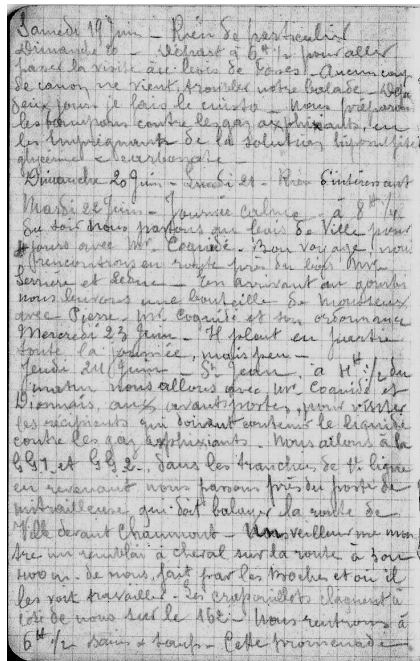 Samedi 19 Juin - Rien de particulier
Dimanche 20 - Départ à 6H 1/2 pour aller
passer la visite au bois de Fosses. Aucun coup
de canon ne vient troubler notre balade. Déjà
deux jours je fais le cuisto - Nous préparons
les tampons contre les gaz asphixiants, en
les imprégnants de la solution hiposulfite
glycérine & carbonate -
Dimanche 20 Juin - Lundi 21 - Rien d'intéressant
Mardi 22 Juin - Journée calme - à 8H 1/2
du soir nous partons au bois de Ville pour
4 jours avec Mr Coquidé - Bon voyage, nous
rencontrons en route près du bois Mrs
et Leduc - En arrivant au gourbi
nous buvons une bouteille de mousseux
avec Pierre - Mr Coquidé et son ordonnance
Mercredi 23 Juin - Il pleut en
toute la journée, mais peu -
Jeudi 24 Juin - St Jean, à 4H 1/2 du
matin nous allons avec Mr Coquidé et
Dionnais, aux avant postes, pour visiter
les récipients qui doivent contenir le liquide
contre les gaz asphixiants - Nous allons à la
GG1 et GG2, dans les tranchées de 1ère ligne
en revenant nous passons près du poste de
mitrailleuse qui doit balayer la route de
Ville devant Chaumont - Un veilleur me mon
tre un remblai à cheval sur la route à 300
400 m. de nous, fait par les Boches et où il
les voit travailler - Les crapouillots claquent à
côté de nous sur le 162 - Nous rentrons à
6H 1/2 sains & saufs - Cette promenade